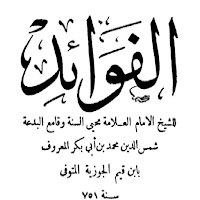 الفوائد
للشيخ الامام العلامة محيي السنة وقامع البدعة
شمس الدين محمد بن أبي بكر المعروف
بابن قيم الجوزية المتوفى
سنة ٧٥١